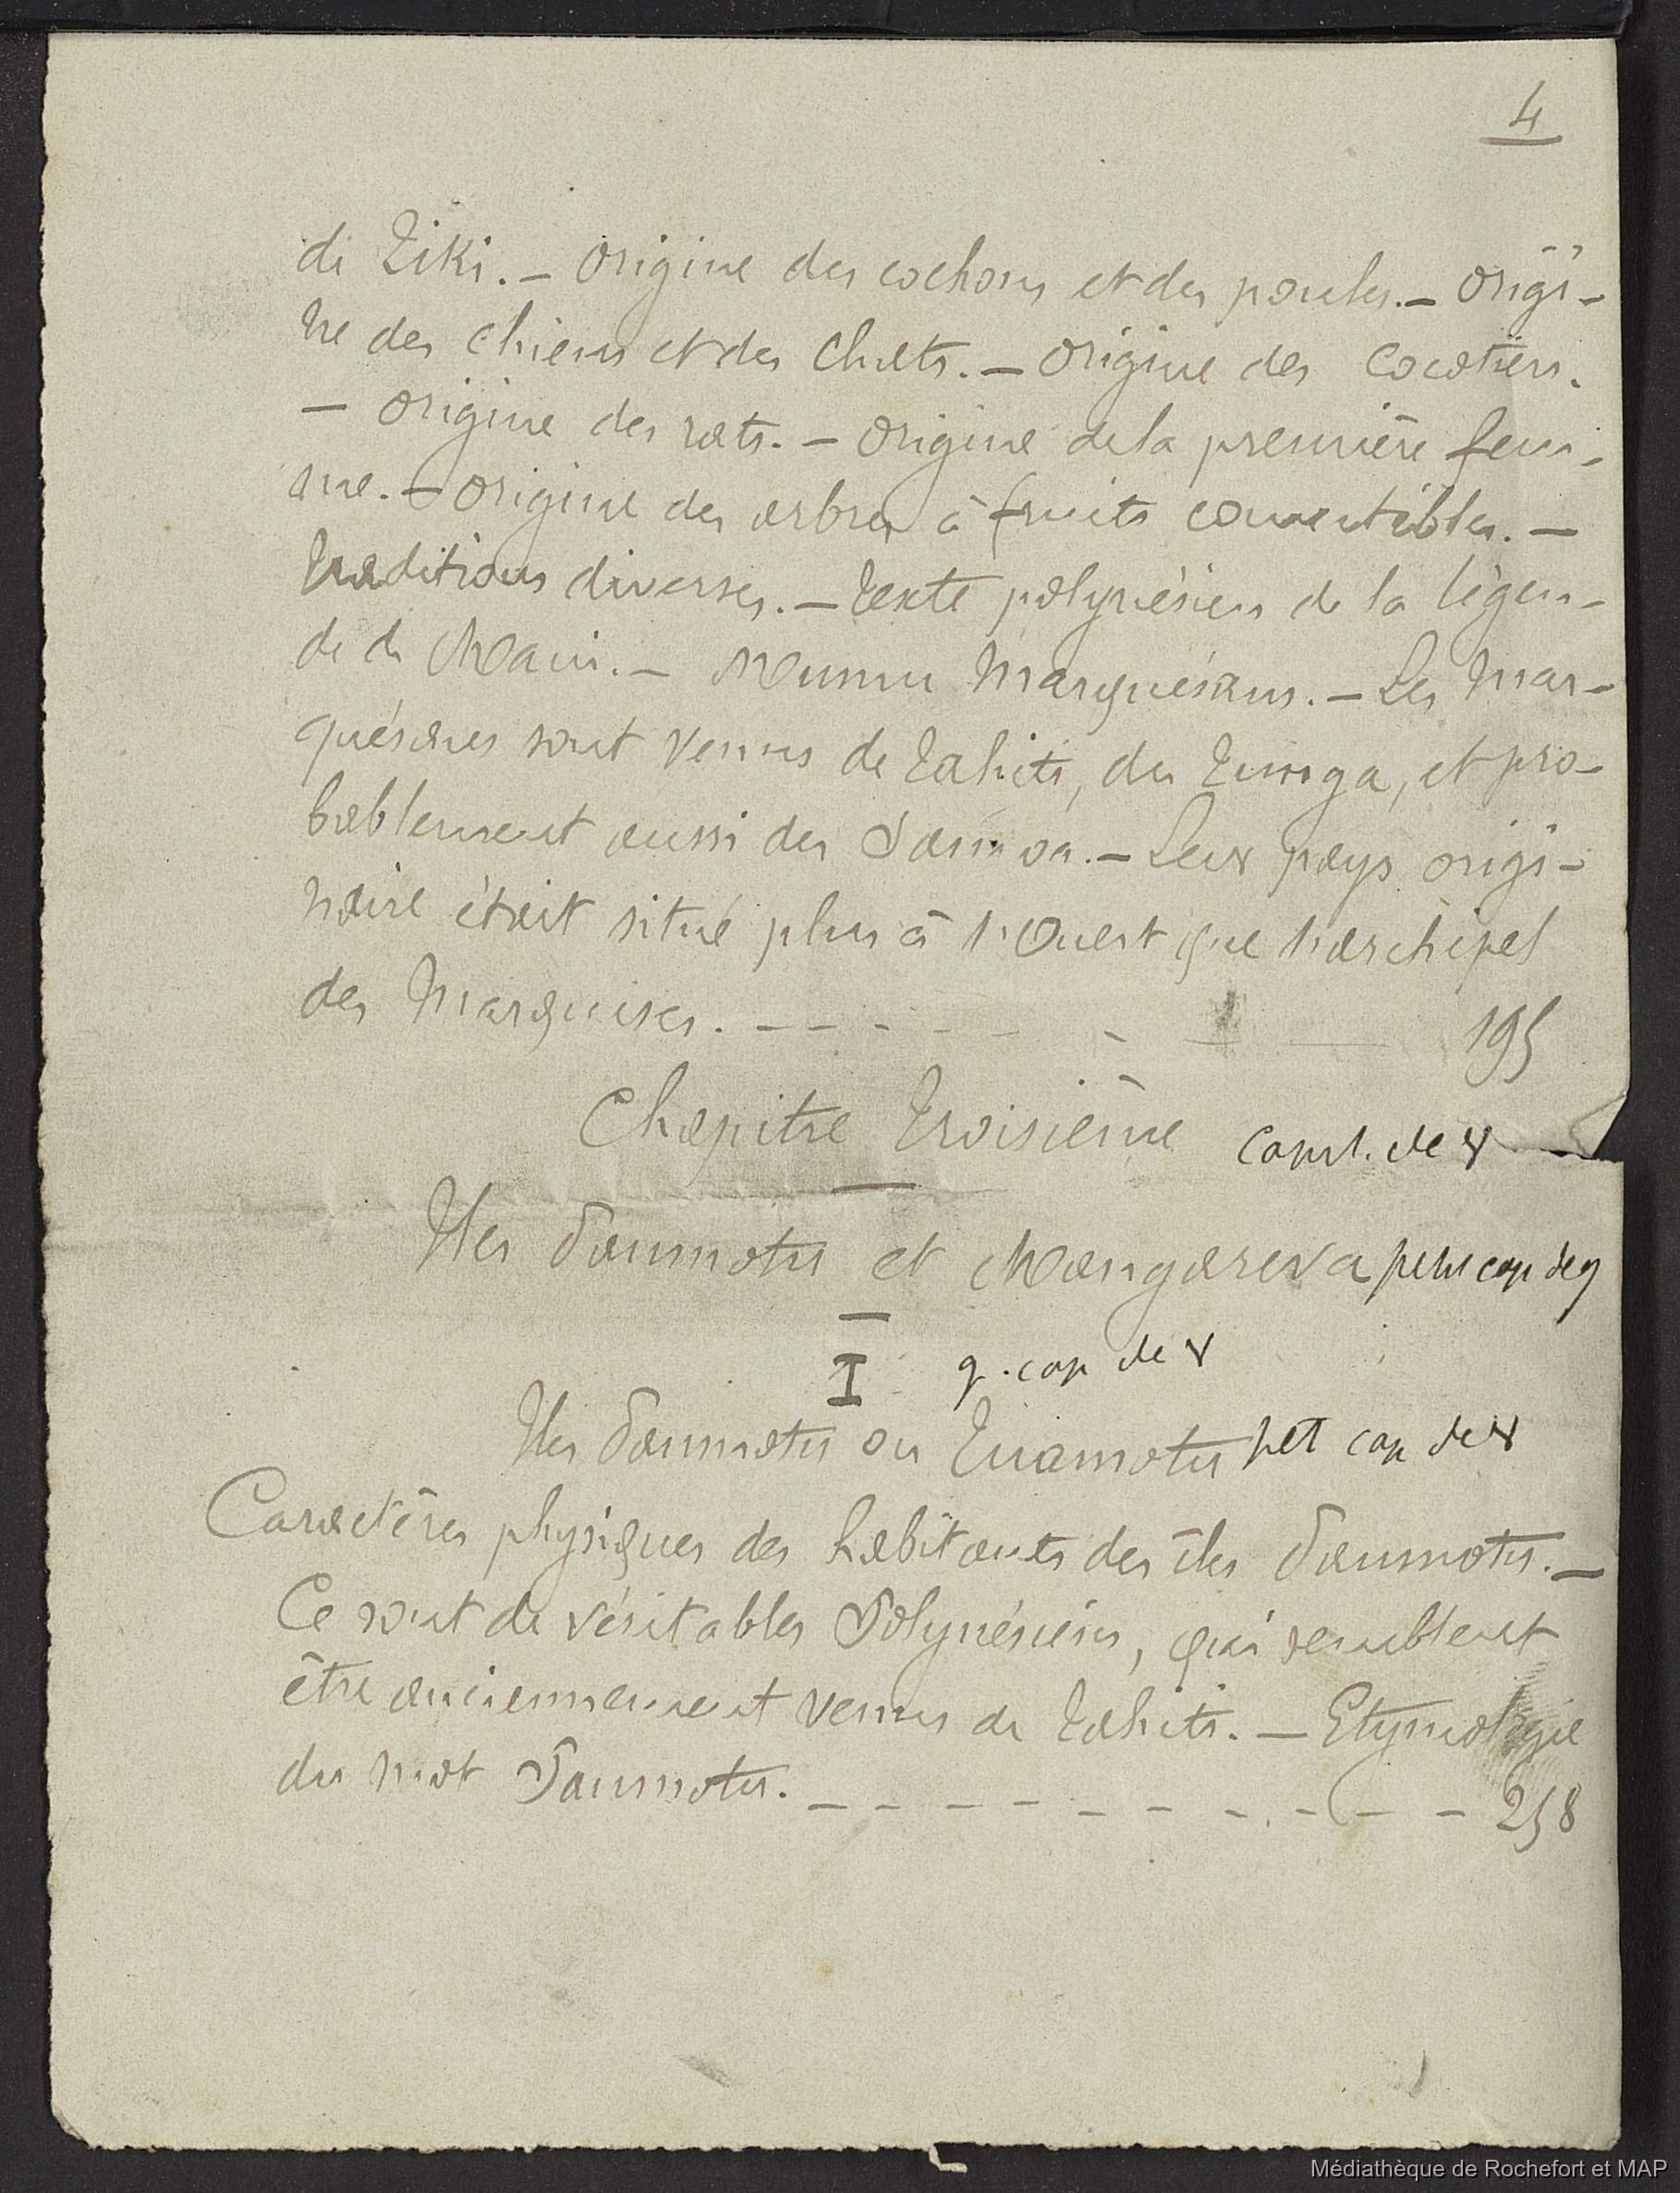 4
de Tiki. — Origine des cochons et des poules. — Origi-
ne des chiens et des chats. — Origine des cocotiers.
— Origine des rats. — Origine de la première fem-
me. — Origine des arbres à fruits comestibles. —
Traditions diverses. — Texte polynésien de la légen-
de de Maui. — Mumu Marquésans. — Les Mar-
quésans sont venus de Tahiti, des Tunga, et pro-
bablement aussi des Samoa. — Leur pays origi-
naire était situé plus à l'Ouest que l'archipel
des Marquises. — — — — — — — — 195
Chapitre Troisième capit. de 8
Iles Paumotu et Mangareva petit cap de 9
I g. cap de 8
Iles Paumotu ou Tuamotu pet cap de 8
Caractères physiques des habitants des îles Paumotu. —
Ce sont de véritables Polynésiens, qui semblent
être anciennement venus de Tahiti. — Etymologie
du mot Paumotu. — — — — — — — — — — 258
Médiathèque de Rochefort et MAP